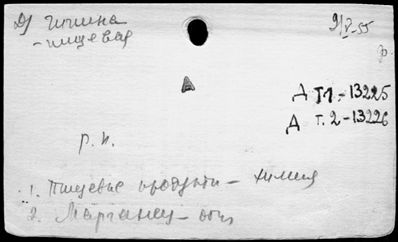 Д) Химия
- пищевая
9/V-55
А
Д Т1.-13225
Д Т.2-13226
Р.И.
1. Пищевые продукты - химия
2. Марганец -